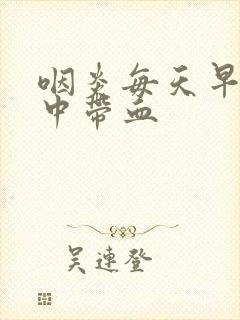 咽炎每天早
中带血
吴连登